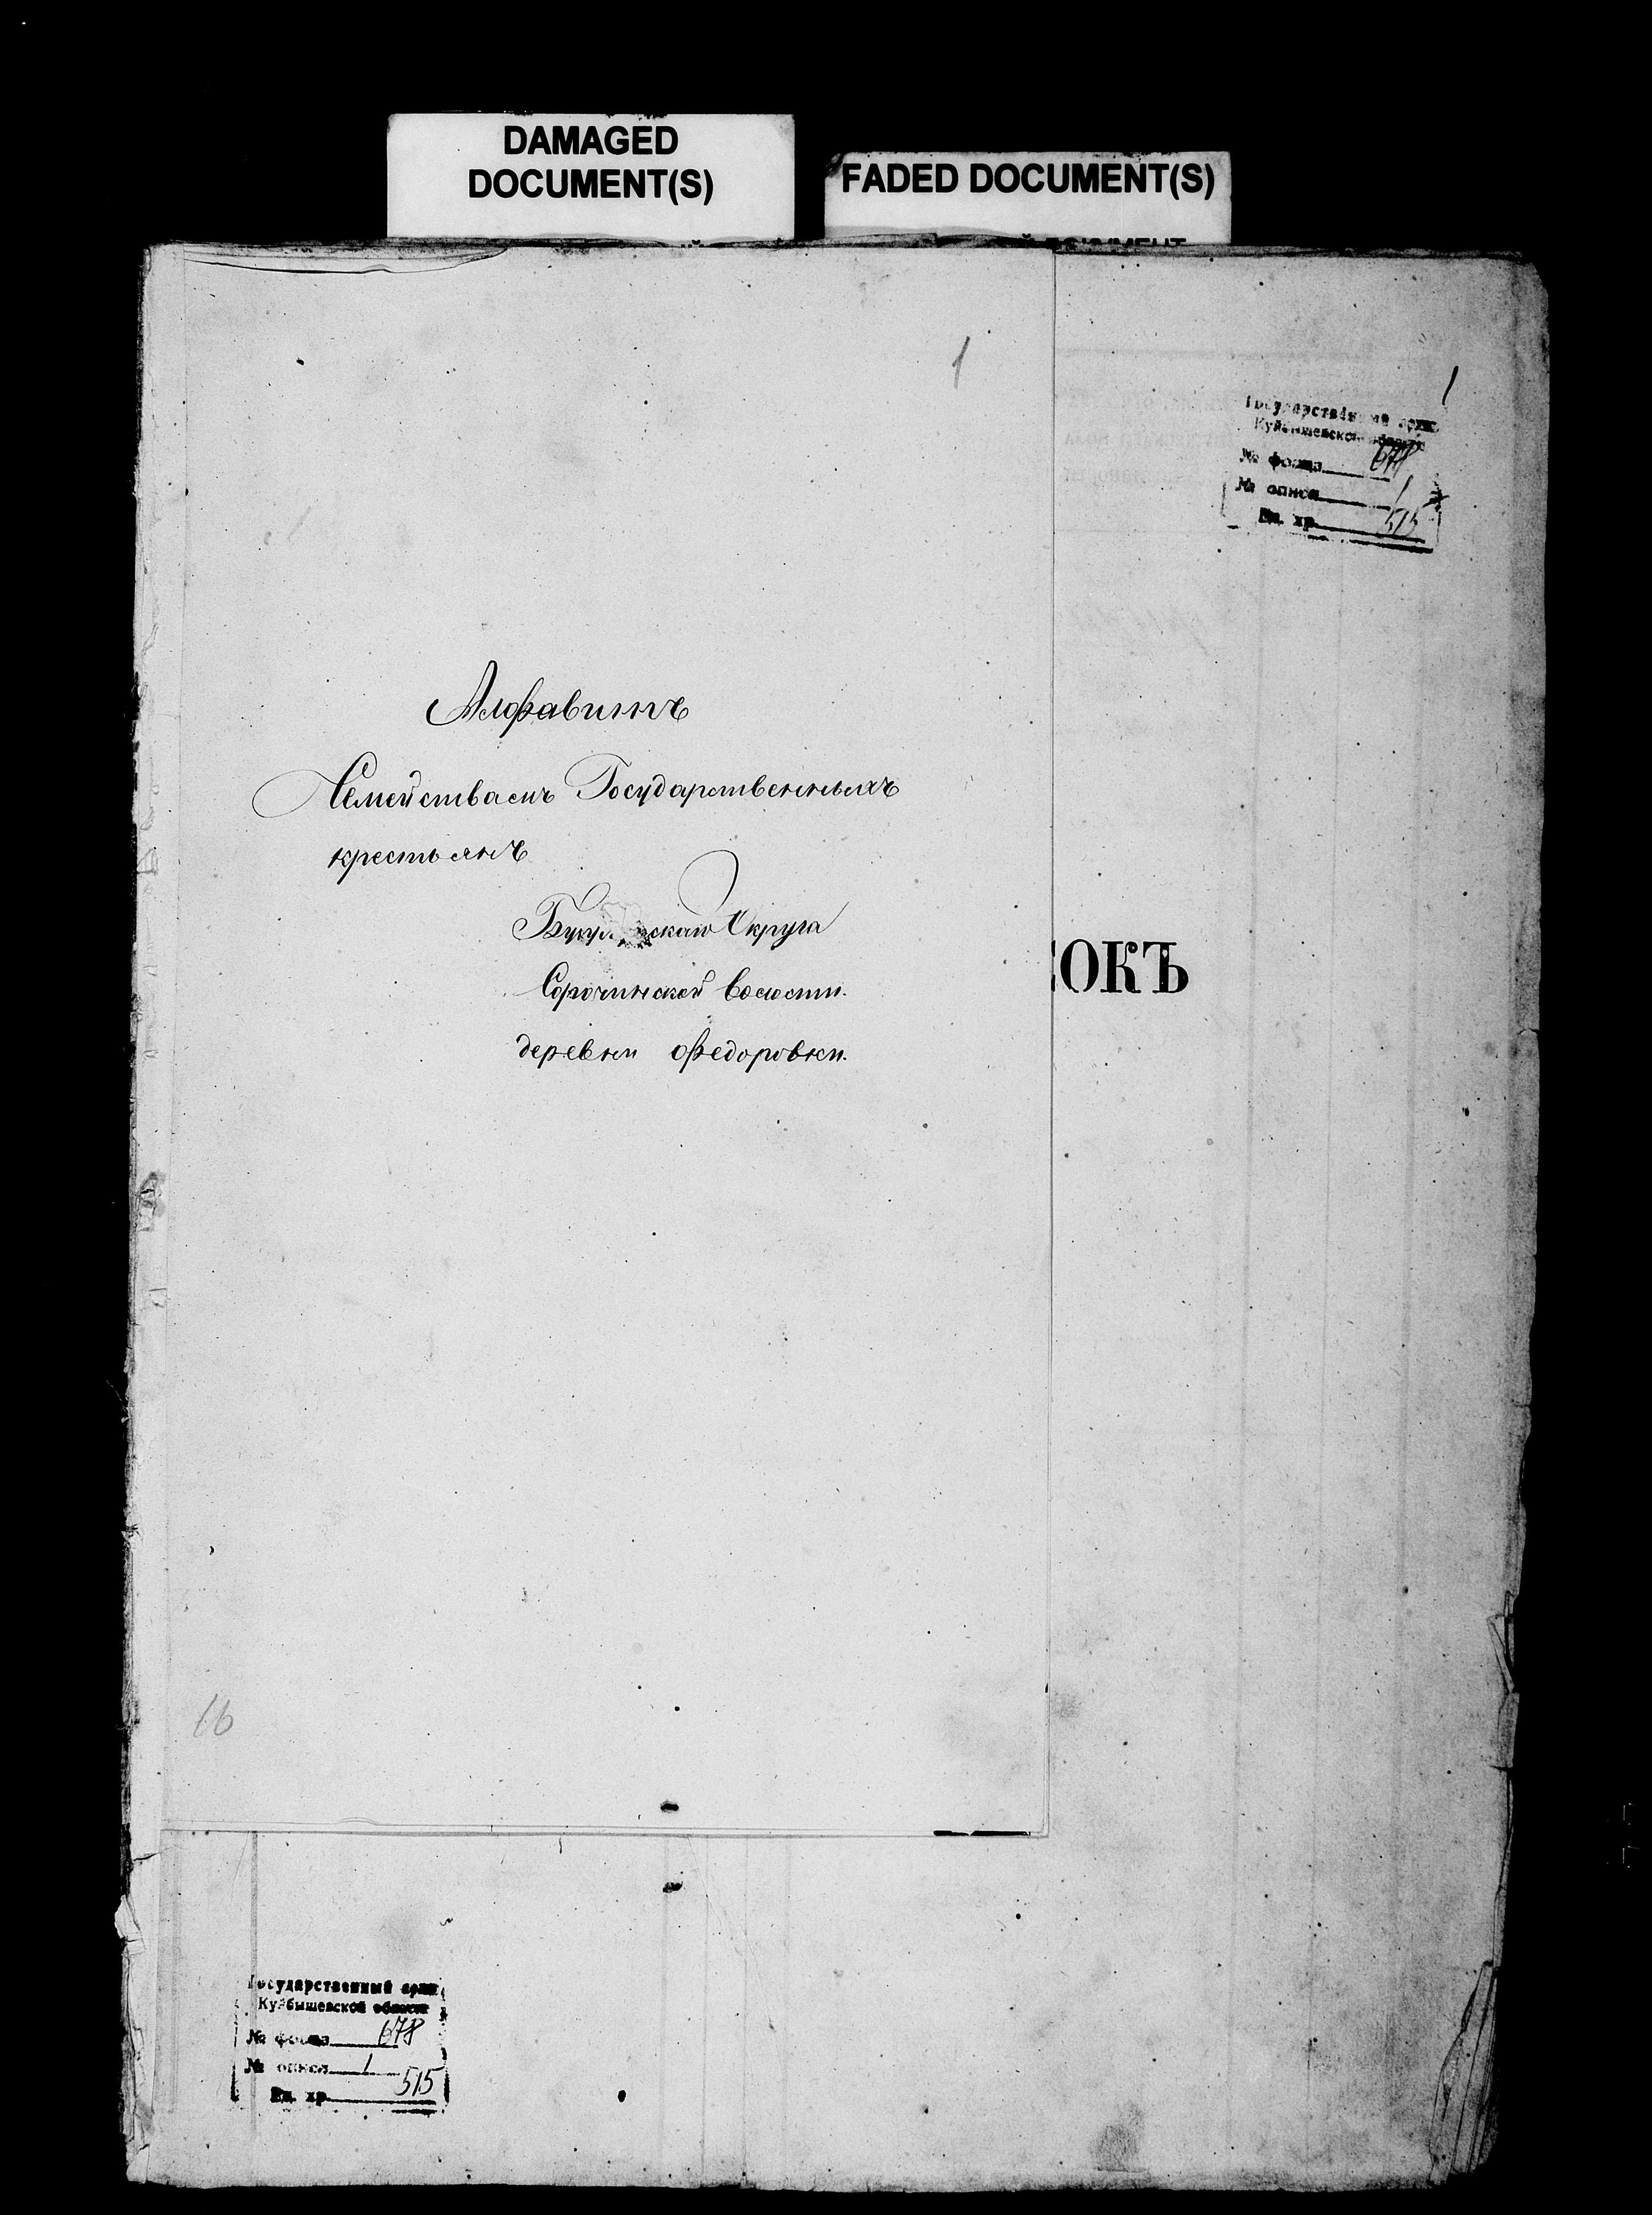 DAMAGED
DOCUMENT(S)
FADED DOCUMENT(S)
1
1
Государственный архив
Куйбышевской области
№ фонда 678
№ описи 1
Ед. хр. 515
Алфавитъ
Семействамъ Государственныхъ
крестьянъ
Округа
Сорочинской волости.
деревни Федоровки.
ОКЪ
16
Государственный архив
Куйбышевской области
№ фонда 678
№ описи 1
Ед. хр. 515